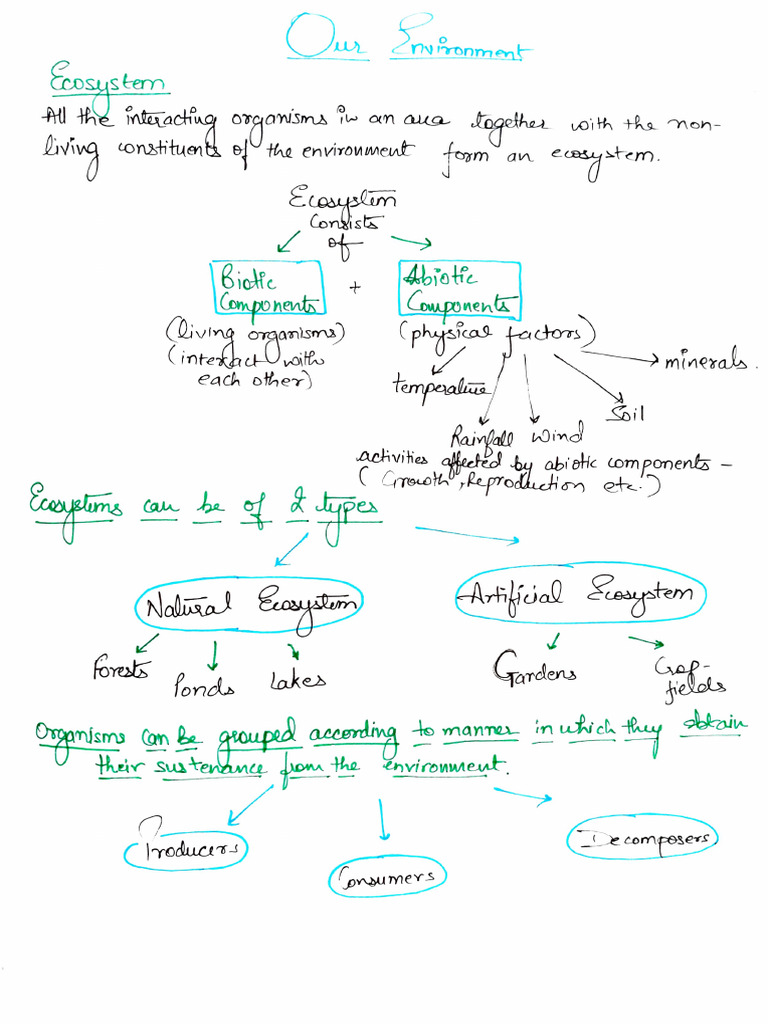 Our Environment
Ecosystem
All the interacting organisms in an area together with the non-
living constituents of the environment form an ecosystem.
Ecosystem
Consists
of
Biotic
Components
+
Abiotic
Components
(living organisms)
(interact with
each other)
(physical factors)
temperature
Rainfall
Wind
Soil
minerals.
activities affected by abiotic components -
(Growth, Reproduction etc.)
Ecosystems can be of 2 types
Natural Ecosystem
Artificial Ecosystem
Forests
Ponds
Lakes
Gardens
Crop-
fields
Organisms can be grouped according to manner in which they obtain
their sustenance from the environment.
Producers
Consumers
Decomposers